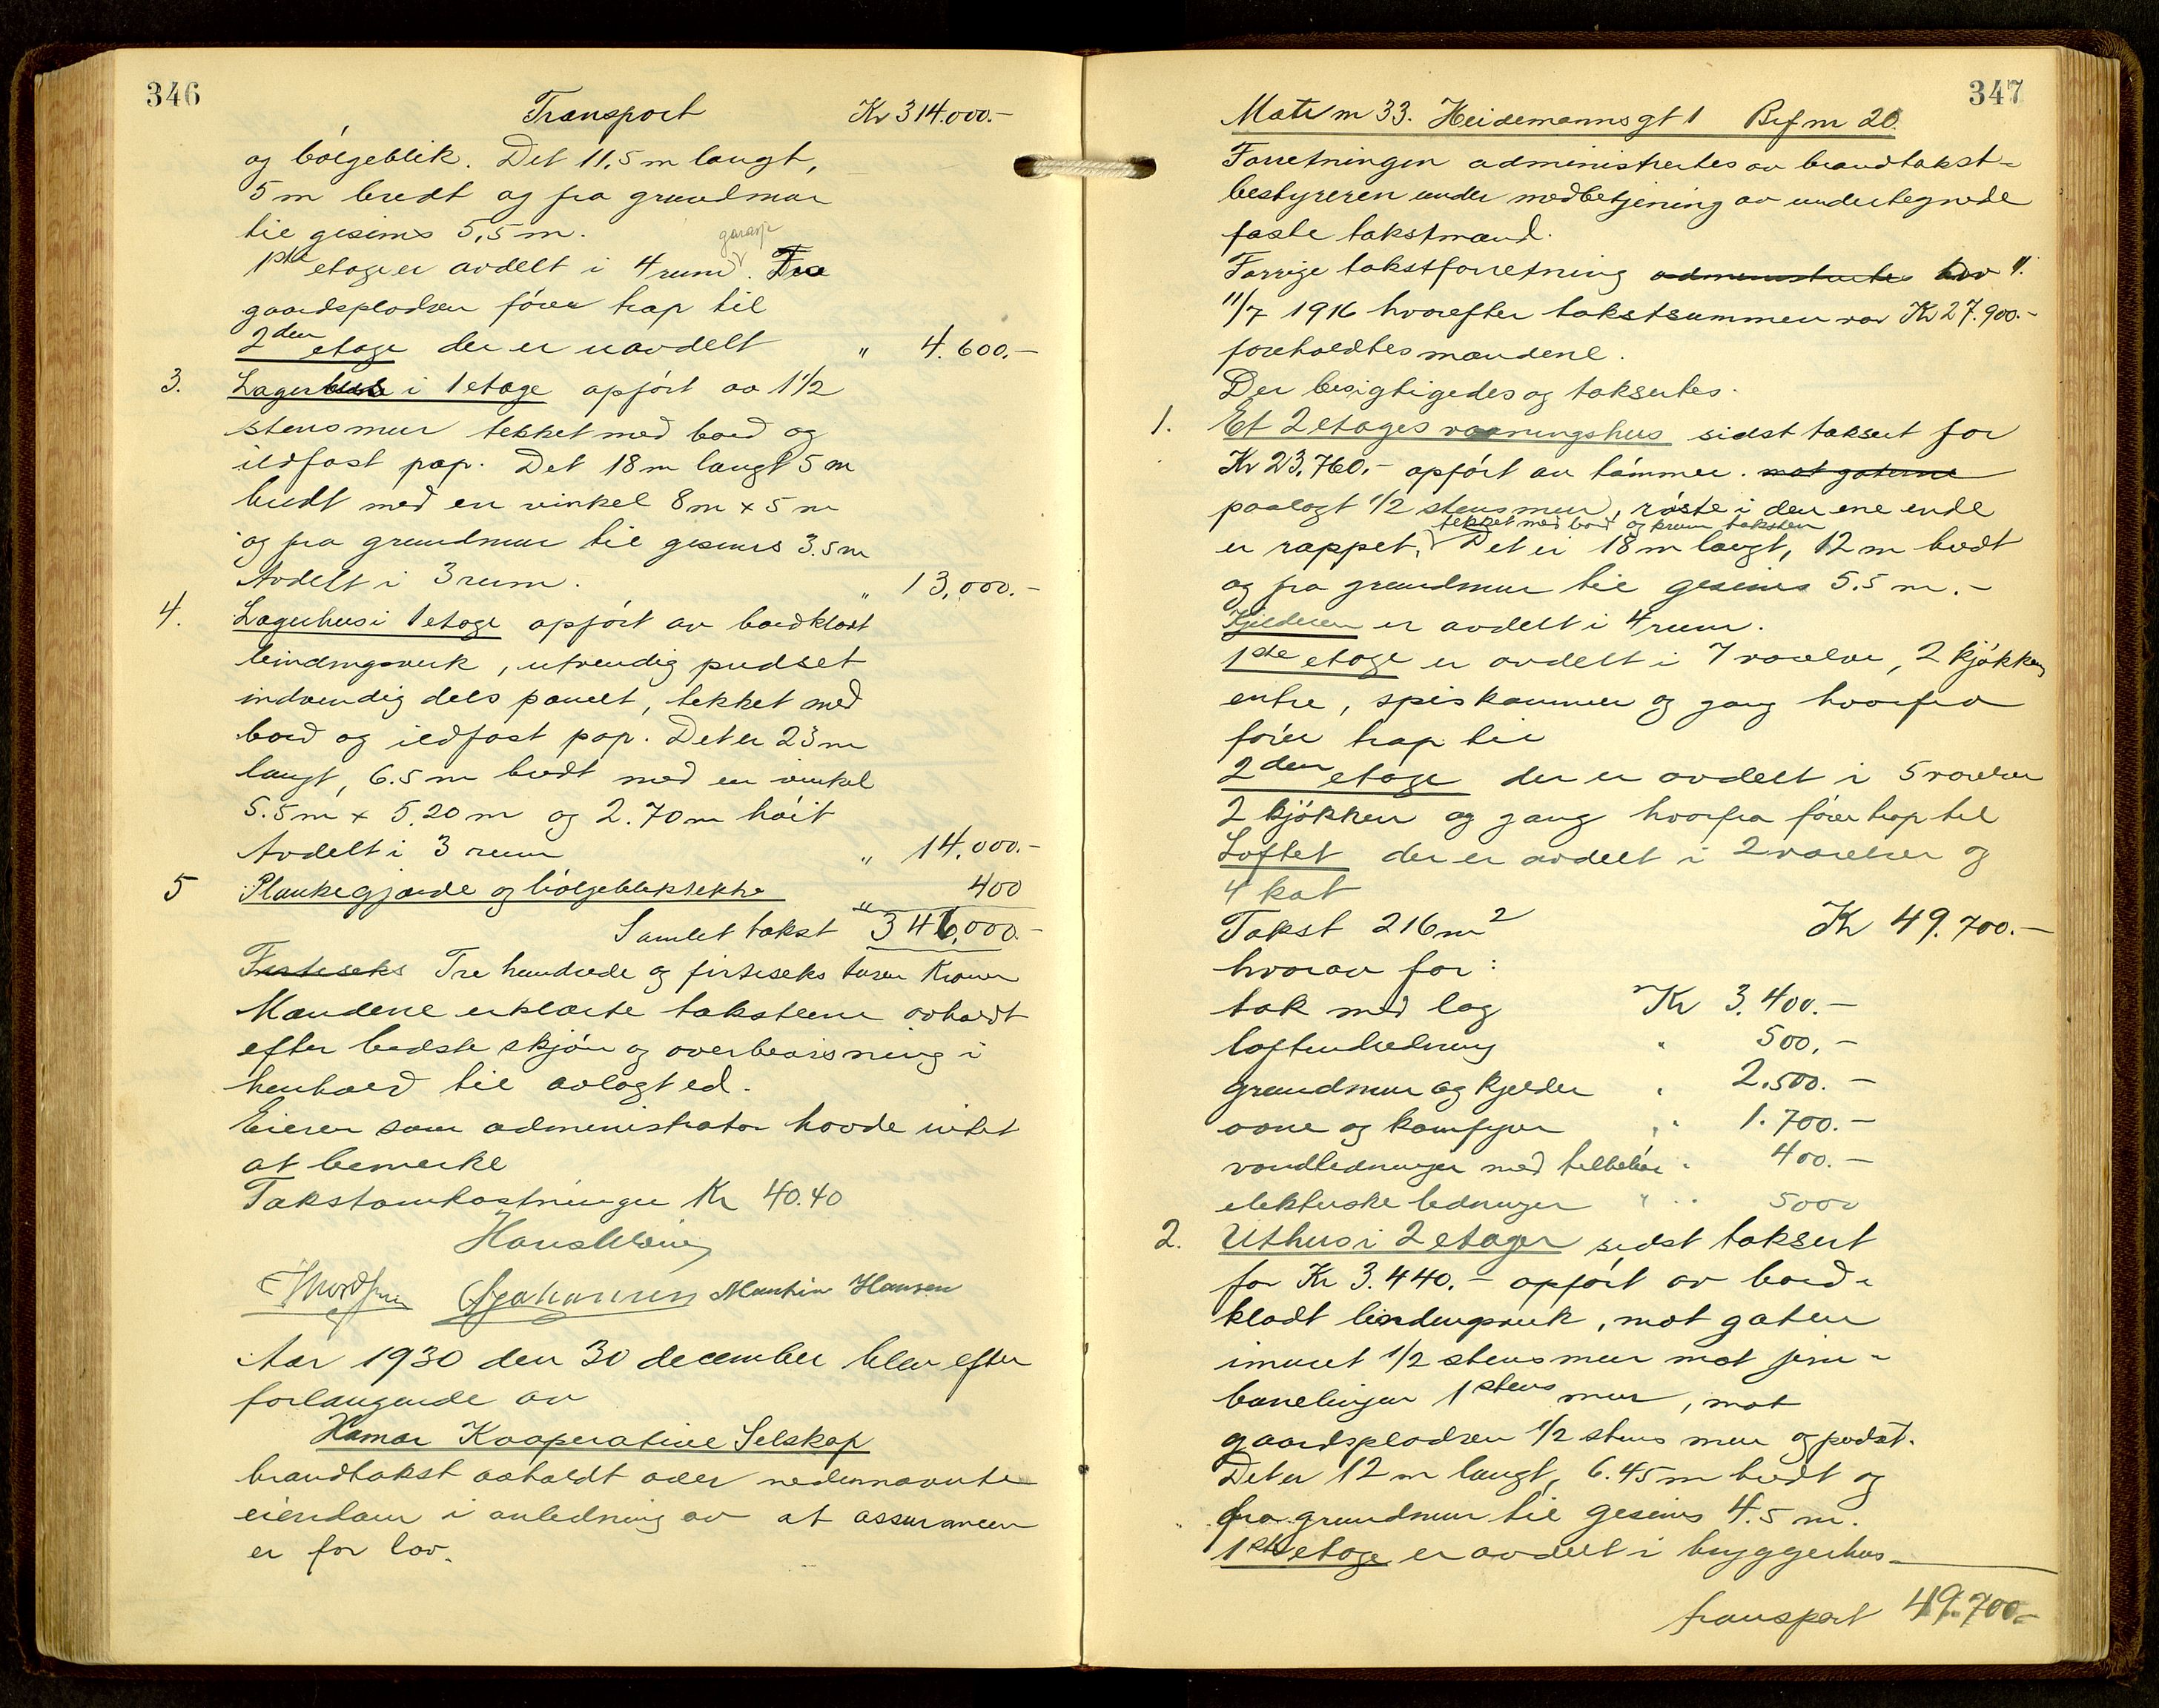 346
Transport Kr 314.000.-
og bølgeblik. Det 11,5 m langt,
5 m bredt og fra grundmur
til gesims 5,5 m.
garasje
1ste etage er avdelt i 4 rum. Fra
gaardspladsen fører trap til
2den etage der er uavdelt " 4.600.-
3. Lagerhus i 1 etage opført av 1 1/2
stensmur tekket med bord og
ildfast pap. Det 18 m langt 5 m
bredt med en vinkel 8 m x 5 m
og fra grundmur til gesims 3.5 m
Avdelt i 3 rum. " 13,000.-
4. Lagerhus i 1 etage opført av bordklædt
bindingsverk, utvendig pudset
indvendig dels panelt, tekket med
bord og ildfast pap. Det er 23 m
langt, 6.5 m bredt med en vinkel
5.5 m x 5,20 m og 2.70 m høit
Avdelt i 3 rum " 14,000.-
5 Plankegjærde og bølgeblik " 400
Samlet takst 346,000.-
Firtiseks Tre hundrede og firtiseks tusen Kroner
Mændene erklærte taksterne avholdt
efter bedste skjøn og overbevisning i
henhold til avlagt ed.
Eieren som administrator hadde intet
at bemerke
Takstomkostninger Kr 40.40
Martin Hansen
Aar 1930 den 30 december blev efter
forlangende av
Hamar Kooperative Selskap
brandtakst avholdt over nedennævnte
eiendom i anledning av at assurancen
er for lav.
347
Matr nr 33. Heidemannsgt 1 Brf nr 20.
Forretningen administrertes av brandtakst-
bestyreren under medbetjening av undertegnede
faste takstmænd.
Forrige takstforretning administrertes
11/7 1916 hvorefter takstsummen var Kr 27.900.-
foreholdtes mændene.
Der besigtigedes og taksertes.
1. Et 2 etages vaaningshus sidst taksert for
Kr 23,760.- opført av tømmer. mot gaterne
paalagt 1/2 stensmur, røste i den ene ende
tekket med bord og krum taksten
er rappet. Det er 18 m langt, 12 m bredt
og fra grundmur til gesims 5.5 m.-
Kjelderen er avdelt i 4 rum.
1ste etage er avdelt i 7 værelser, 2 kjøkken,
entre, spiskammer og gang hvorfra
fører trap til
2den etage der er avdelt i 5 værelser
2 kjøkken og gang hvorfra fører trap til
Loftet der er avdelt i 2 værelser og
4 kot
Takst 216 m2 Kr 49.700.-
hvorav for:
tak med lag Kr 3.400.-
loftindredning " 500.-
grundmur og kjelder " 2.500.-
ovne og komfyrer " 1.700.-
vandledninger med tilbehør " 400.-
elektriske ledninger " 500
2. Uthus i 2 etager sidst taksert
for Kr 3.440.- opført av bord-
klædt bindingsverk, mot gaten
imuret 1/2 stensmur mot jern-
banelinjen 1 stens mur, mot
gaardspladsen 1/2 stens mur og pudset.
Det er 12 m langt, 6.45 m bredt og
fra grundmur til gesims 4.5 m.
1ste etage er avdelt i bryggerhus
transport 49.700.-